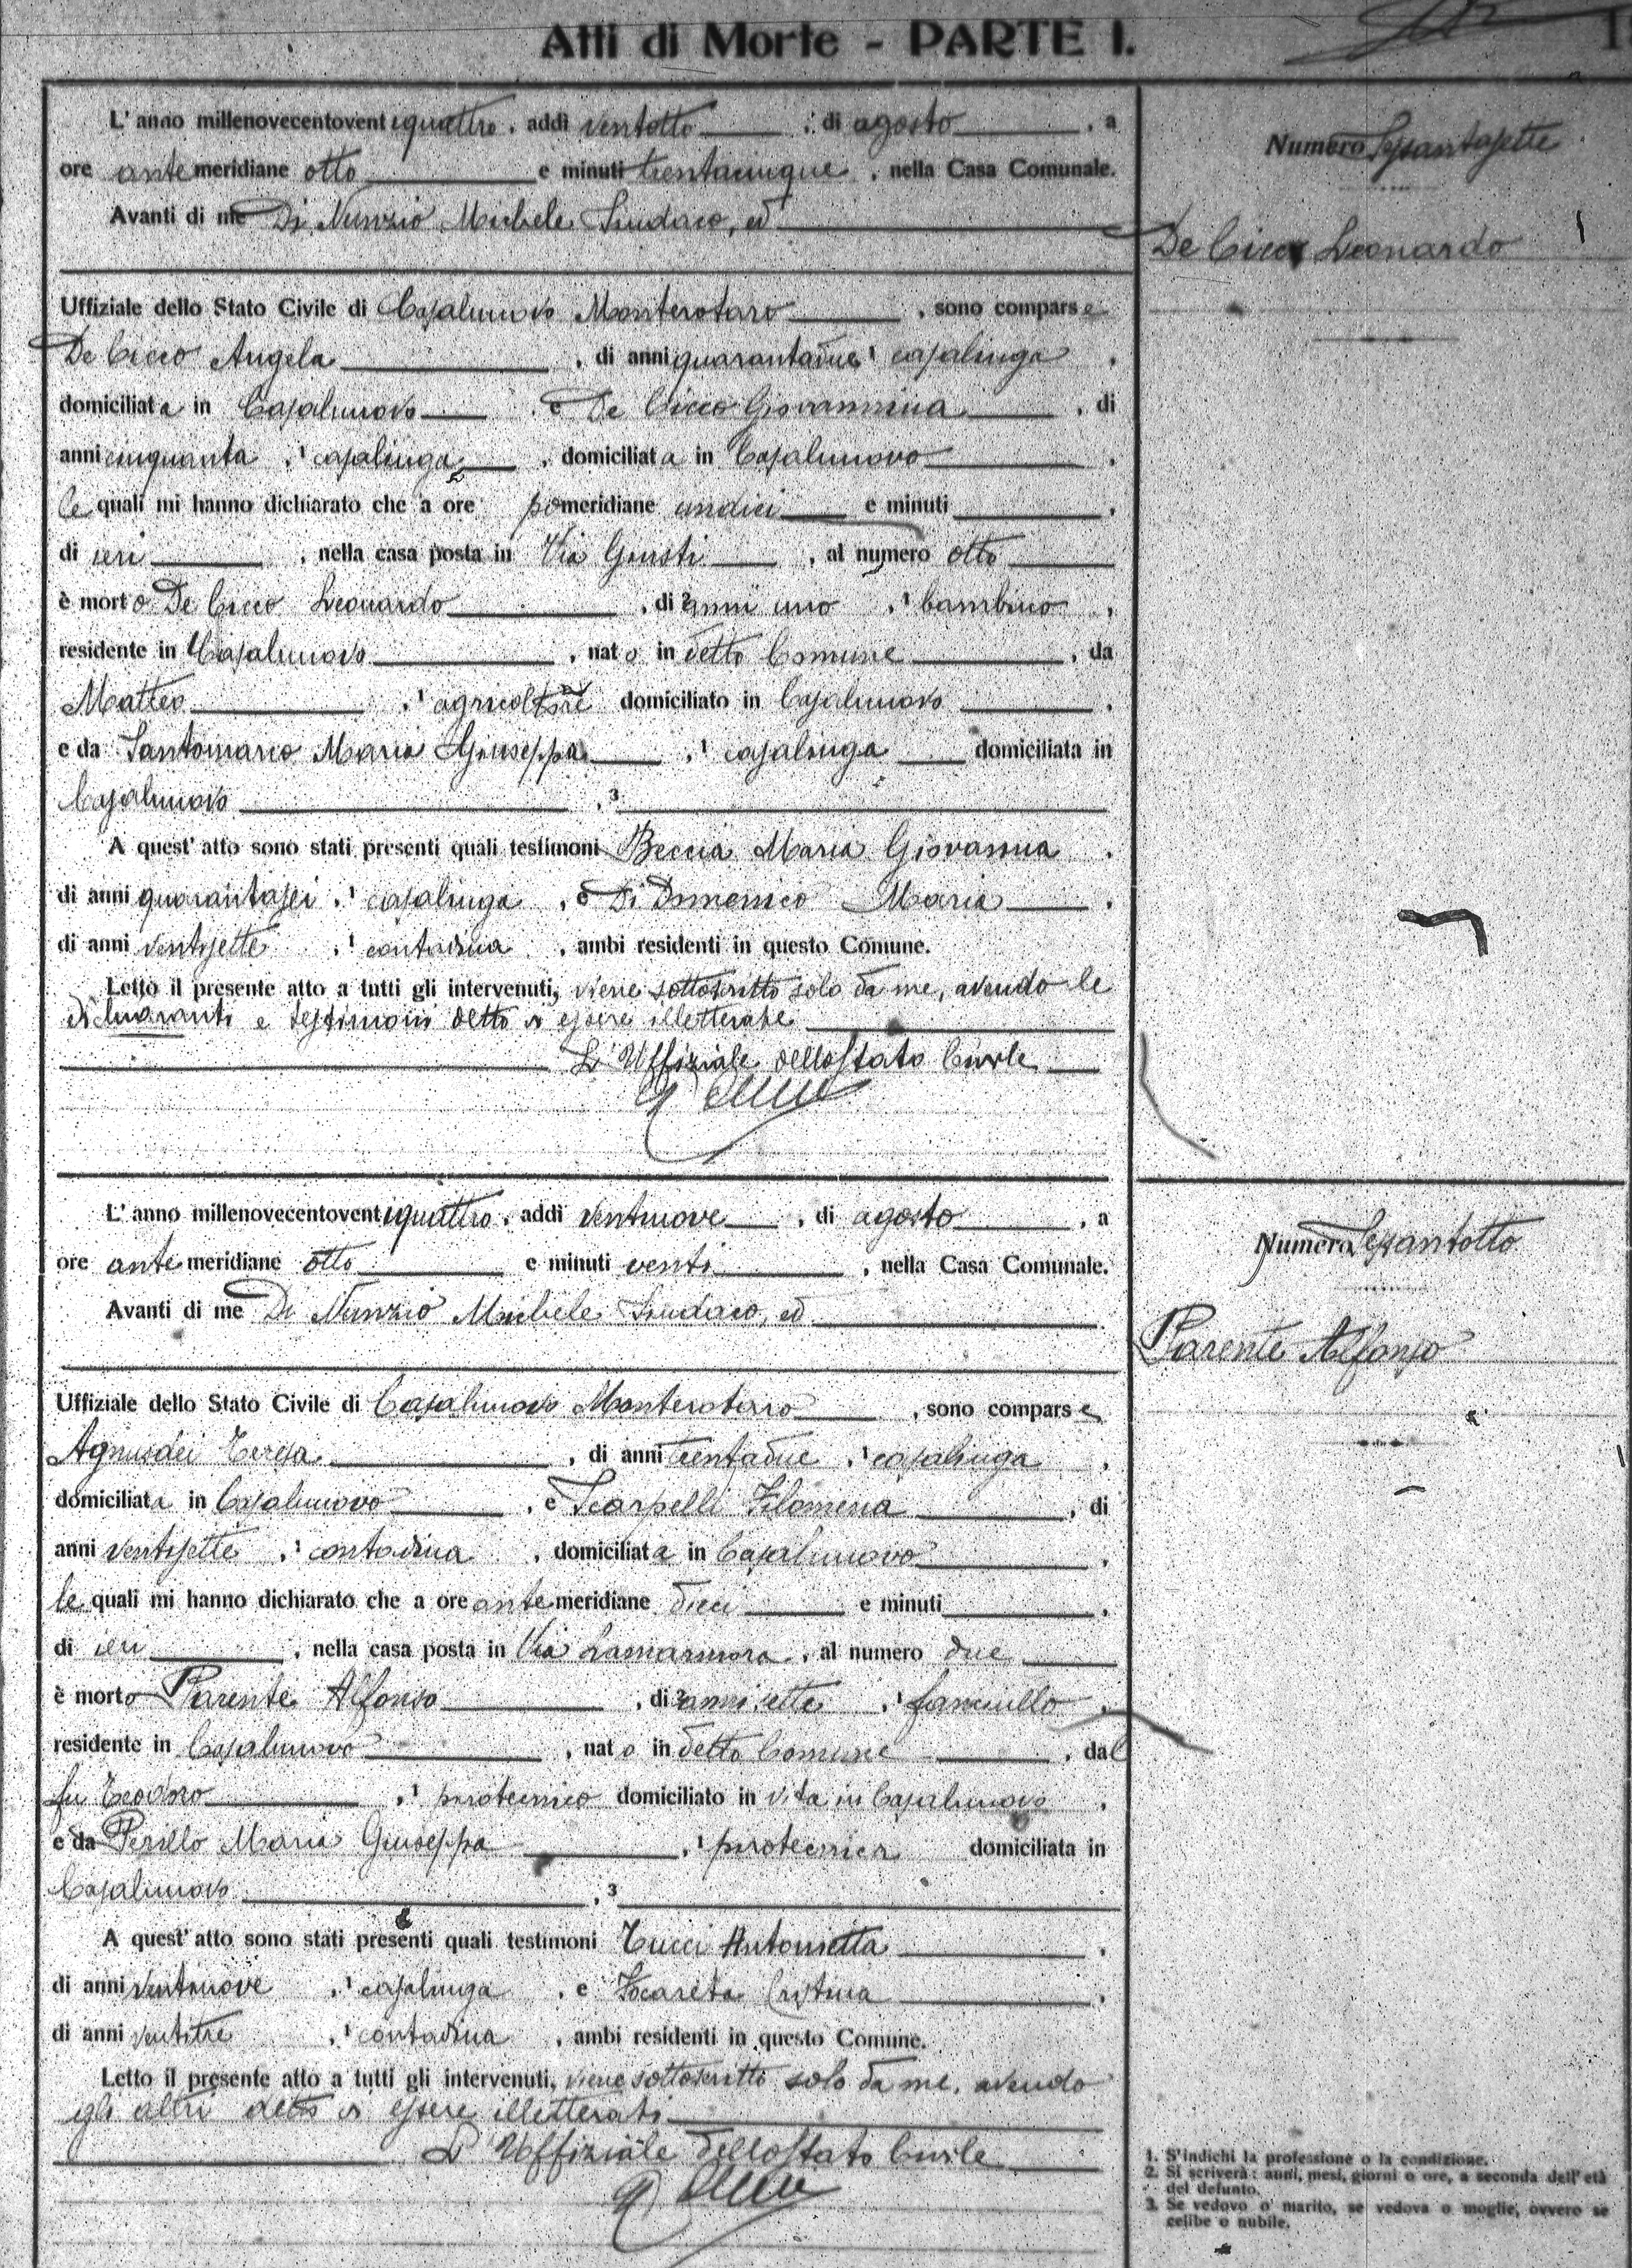 Atti di Morte - PARTE I.
L' anno millenovecentoventiquattro, addì ventotto, di agosto, a
ore antemeridiane otto e minuti trentacinque, nella Casa Comunale.
Avanti di me Di Nunzio Michele Sindaco, ed
Uffiziale dello Stato Civile di Casalnuovo Monterotaro, sono comparse
De Cicco Angela, di anni quarantadue, 1 casalinga,
domiciliata in Casalnuovo, e De Cicco Giovannina, di
anni cinquanta, 1 casalinga, domiciliata in Casalnuovo,
le quali mi hanno dichiarato che a ore pomeridiane undici e minuti,
di ieri, nella casa posta in Via Giusti, al numero otto
è morto De Cicco Leonardo, di 2 anni uno, 1 bambino,
residente in Casalnuovo, nato in detto Comune, da
Matteo, 1 agricoltore domiciliato in Casalnuovo,
e da Santomarco Maria Giuseppa, 1 casalinga domiciliata in
Casalnuovo, 3
A quest' atto sono stati presenti quali testimoni Beccia Maria Giovanna,
di anni quarantasei, 1 casalinga, e Di Domenico Maria,
di anni ventisette, 1 contadina, ambi residenti in questo Comune.
Letto il presente atto a tutti gli intervenuti, viene sottoscritto solo da me, avendo le
dichiaranti e testimoni detto di essere illetterate
L' Uffiziale dello Stato Civile
Numero Sessantasette
De Cicco Leonardo
L' anno millenovecentoventiquattro, addì ventinove, di agosto, a
ore antemeridiane otto e minuti venti, nella Casa Comunale.
Avanti di me Di Nunzio Michele Sindaco, ed
Uffiziale dello Stato Civile di Casalnuovo Monterotaro, sono comparse
Agnusdei Teresa, di anni trentadue, 1 casalinga,
domiciliata in Casalnuovo, e Scarpelli Filomena, di
anni ventisette, 1 contadina, domiciliata in Casalnuovo,
le quali mi hanno dichiarato che a ore antemeridiane dieci e minuti,
di ieri, nella casa posta in Via Lamarmora, al numero due
è morto Parente Alfonso, di 2 anni sette, 1 fanciullo,
residente in Casalnuovo, nato in detto Comune, dal
fu Teodoro, 1 pirotecnico domiciliato in vita in Casalnuovo,
e da Perillo Maria Giuseppa, 1 pirotecnica domiciliata in
Casalnuovo, 3
A quest' atto sono stati presenti quali testimoni Tucci Antonietta,
di anni ventinove, 1 casalinga, e Cristina,
di anni ventitre, 1 contadina, ambi residenti in questo Comune.
Letto il presente atto a tutti gli intervenuti, viene sottoscritto solo da me, avendo
gli altri detto di essere illetterati
L' Uffiziale dello Stato Civile
Numero Sessantotto
Parente Alfonso
1. S'indichi la professione o la condizione.
2. Si scriverà: anni, mesi, giorni o ore, a seconda dell' età
del defunto.
3. Se vedovo o marito, se vedova o moglie, ovvero se
celibe o nubile.